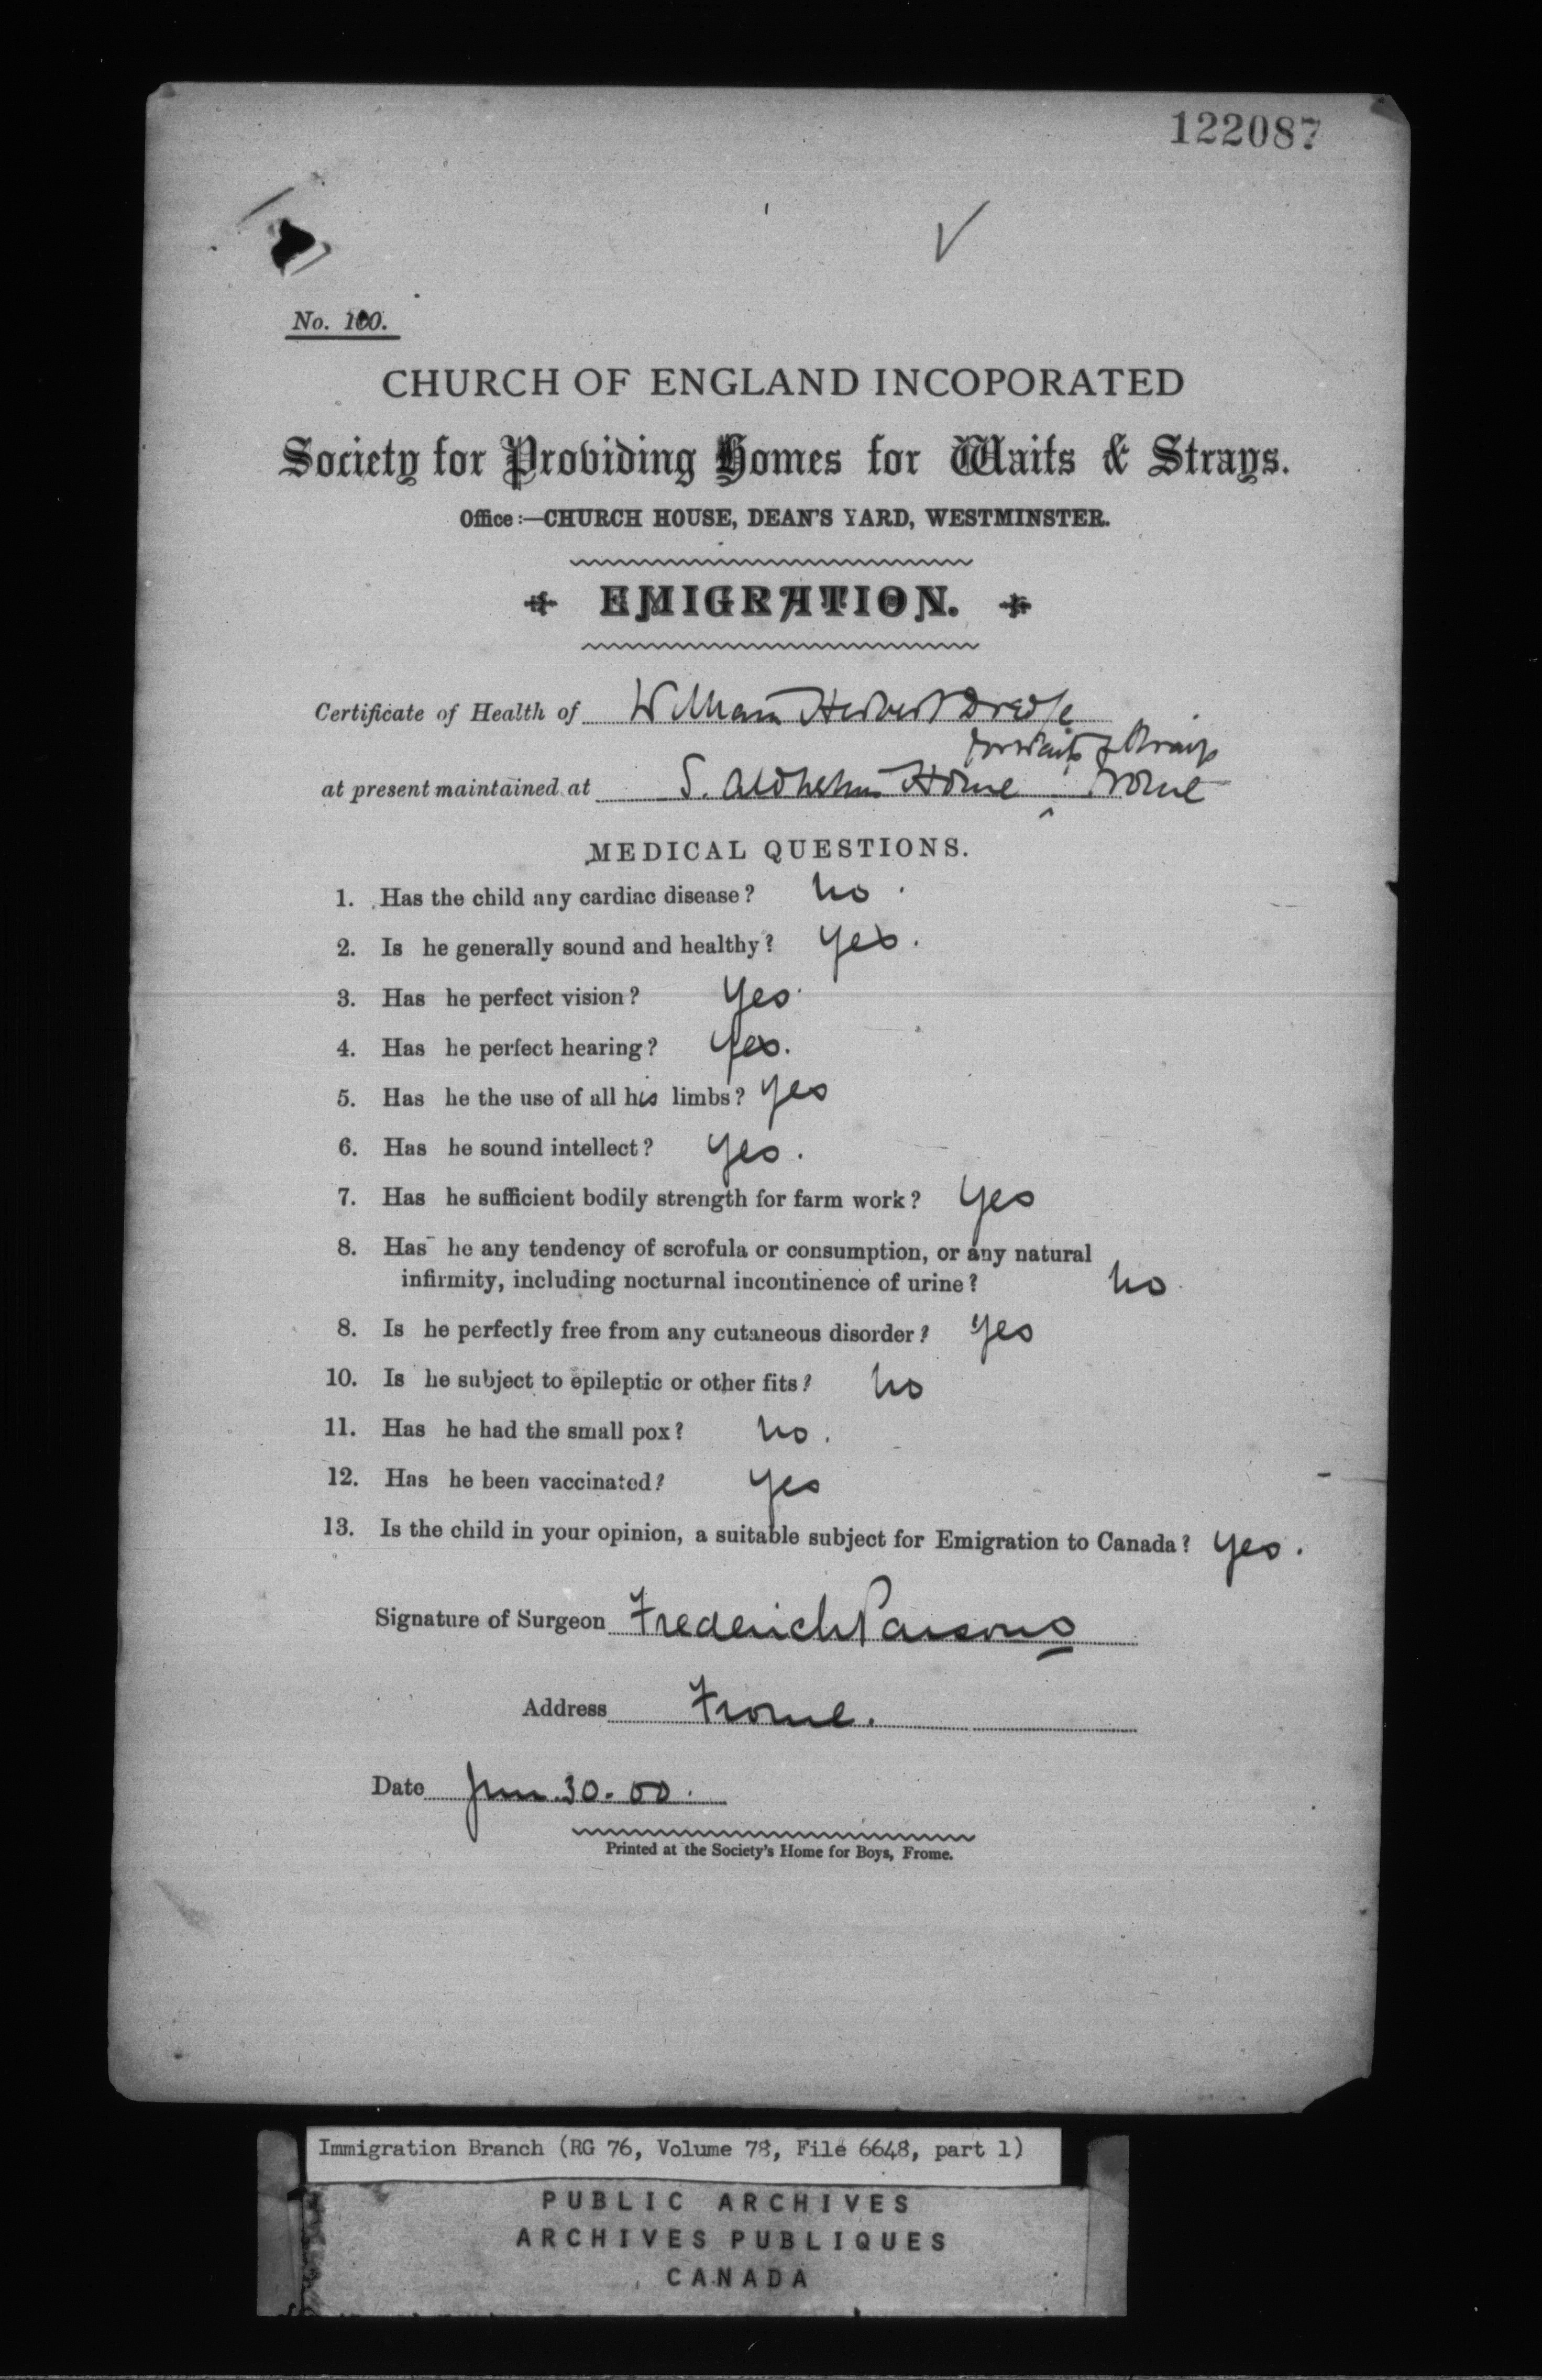 122087
No. 100.
CHURCH OF ENGLAND INCOPORATED
Society for Providing Homes for Waifs & Strays.
Office:—CHURCH HOUSE, DEAN'S YARD, WESTMINSTER.
EMIGRATION.
Certificate of Health of William Herbert
for Waifs & Strays
at present maintained at S. Aldhelms Home ^ Frome
MEDICAL QUESTIONS.
1. Has the child any cardiac disease? no.
2. Is he generally sound and healthy? yes.
3. Has he perfect vision? yes.
4. Has he perfect hearing? yes.
5. Has he the use of all his limbs? yes
6. Has he sound intellect? yes.
7. Has he sufficient bodily strength for farm work? yes
8. Has he any tendency of scrofula or consumption, or any natural
infirmity, including nocturnal incontinence of urine? no
8. Is he perfectly free from any cutaneous disorder? yes
10. Is he subject to epileptic or other fits? no
11. Has he had the small pox? no.
12. Has he been vaccinated? yes
13. Is the child in your opinion, a suitable subject for Emigration to Canada? yes.
Signature of Surgeon Frederick Parsons
Address Frome.
Date 30. 00.
Printed at the Society's Home for Boys, Frome.
Immigration Branch (RG 76, Volume 78, File 6648, part 1)
PUBLIC ARCHIVES
ARCHIVES PUBLIQUES
CANADA